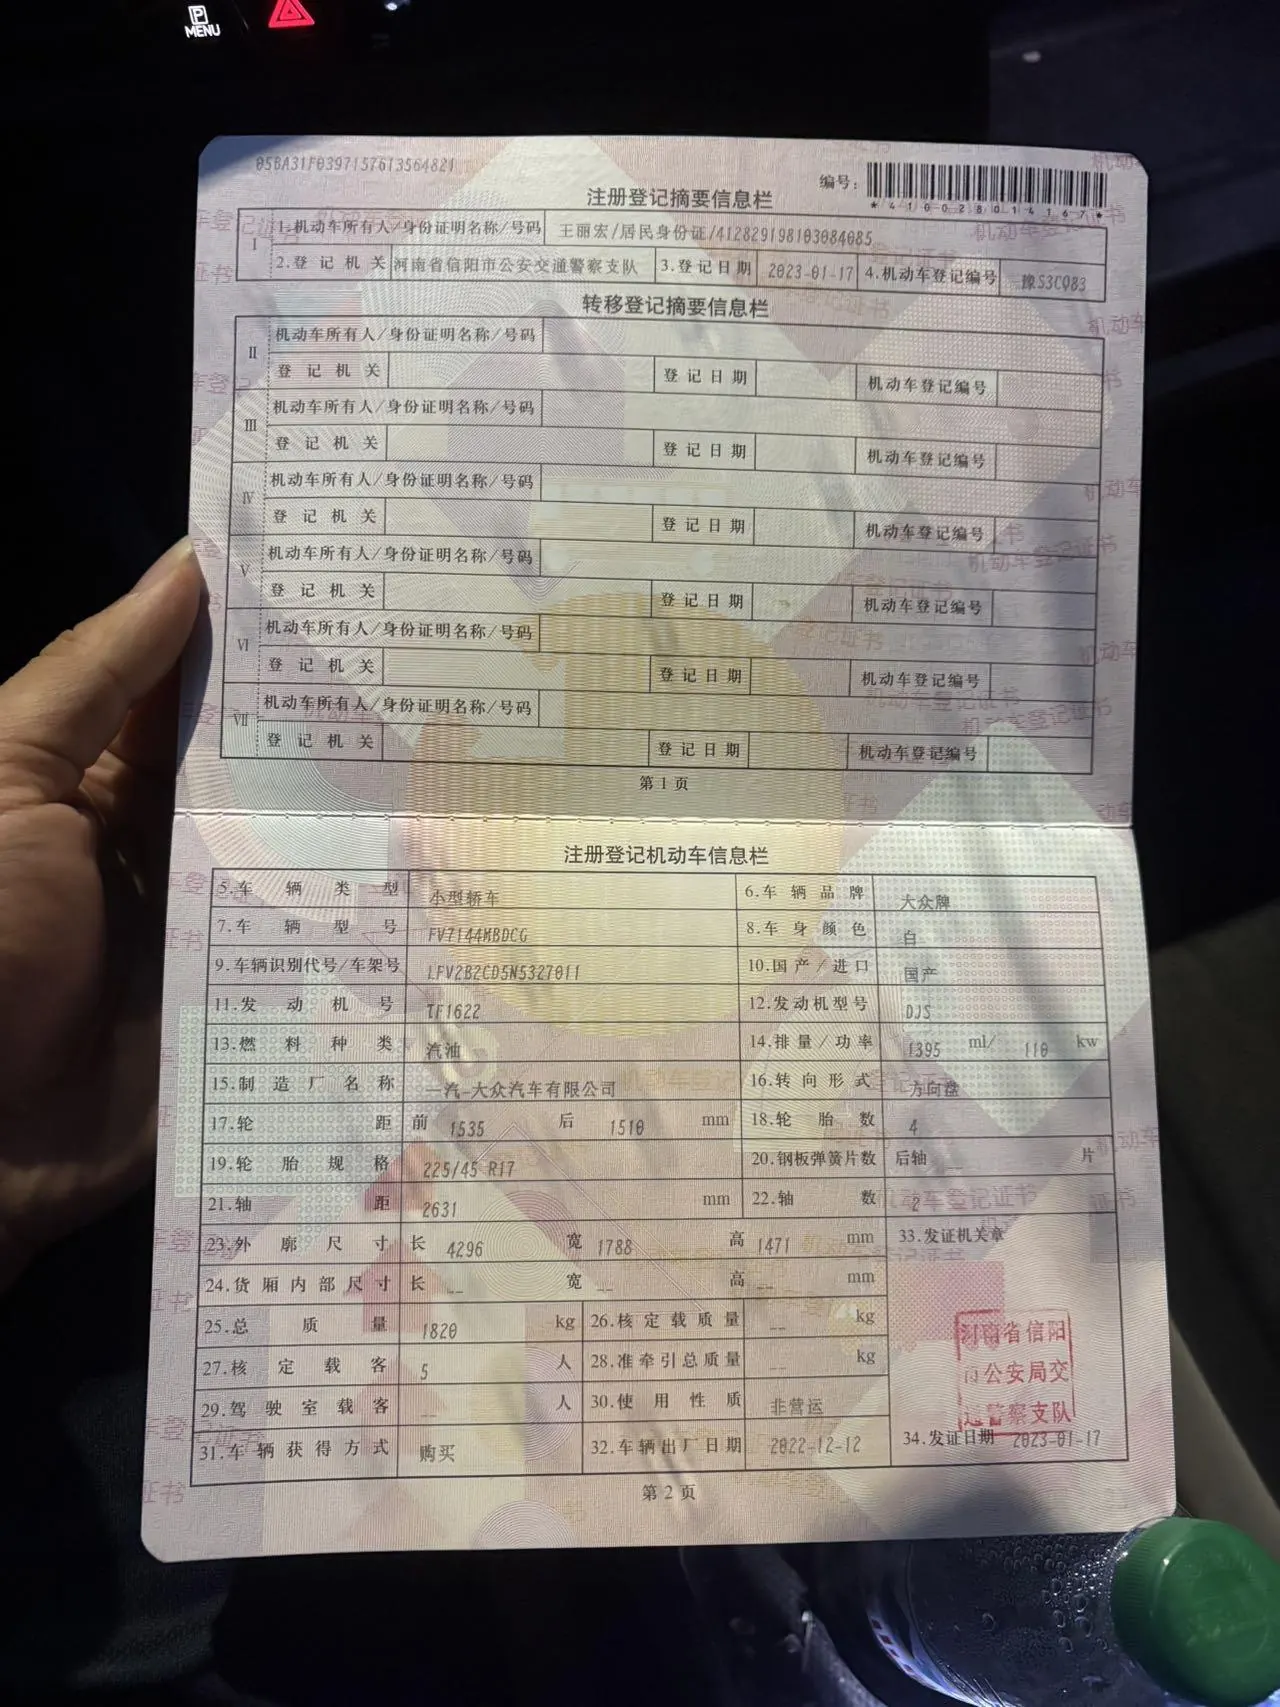 P
MENU
05BA31F0397157613564821
编号：
*410028014167*
注册登记摘要信息栏
I 1.机动车所有人/身份证明名称/号码 王丽宏/居民身份证/412829198103084085
2.登记机关 河南省信阳市公安交通警察支队 3.登记日期 2023-01-17 4.机动车登记编号 豫S3CQ83
转移登记摘要信息栏
II 机动车所有人/身份证明名称/号码
登记机关 登记日期 机动车登记编号
III 机动车所有人/身份证明名称/号码
登记机关 登记日期 机动车登记编号
IV 机动车所有人/身份证明名称/号码
登记机关 登记日期 机动车登记编号
V 机动车所有人/身份证明名称/号码
登记机关 登记日期 机动车登记编号
VI 机动车所有人/身份证明名称/号码
登记机关 登记日期 机动车登记编号
VII 机动车所有人/身份证明名称/号码
登记机关 登记日期 机动车登记编号
第1页
注册登记机动车信息栏
5.车辆类型 小型轿车 6.车辆品牌 大众牌
7.车辆型号 FV7144MBDCG 8.车身颜色 白
9.车辆识别代号/车架号 LFV2B2CD5N5327011 10.国产/进口 国产
11.发动机号 TF1622 12.发动机型号 DJS
13.燃料种类 汽油 14.排量/功率 1395 ml/ 110 kw
15.制造厂名称 一汽-大众汽车有限公司 16.转向形式 方向盘
17.轮距 前 1535 后 1510 mm 18.轮胎数 4
19.轮胎规格 225/45 R17 20.钢板弹簧片数 后轴 __ 片
21.轴距 2631 mm 22.轴数 2
23.外廓尺寸 长 4296 宽 1788 高 1471 mm 33.发证机关章
24.货厢内部尺寸 长 __ 宽 __ 高 __ mm
25.总质量 1820 kg 26.核定载质量 __ kg
27.核定载客 5 人 28.准牵引总质量 __ kg
29.驾驶室载客 __ 人 30.使用性质 非营运
31.车辆获得方式 购买 32.车辆出厂日期 2022-12-12 34.发证日期 2023-01-17
河南省信阳
市公安局交
通警察支队
第2页